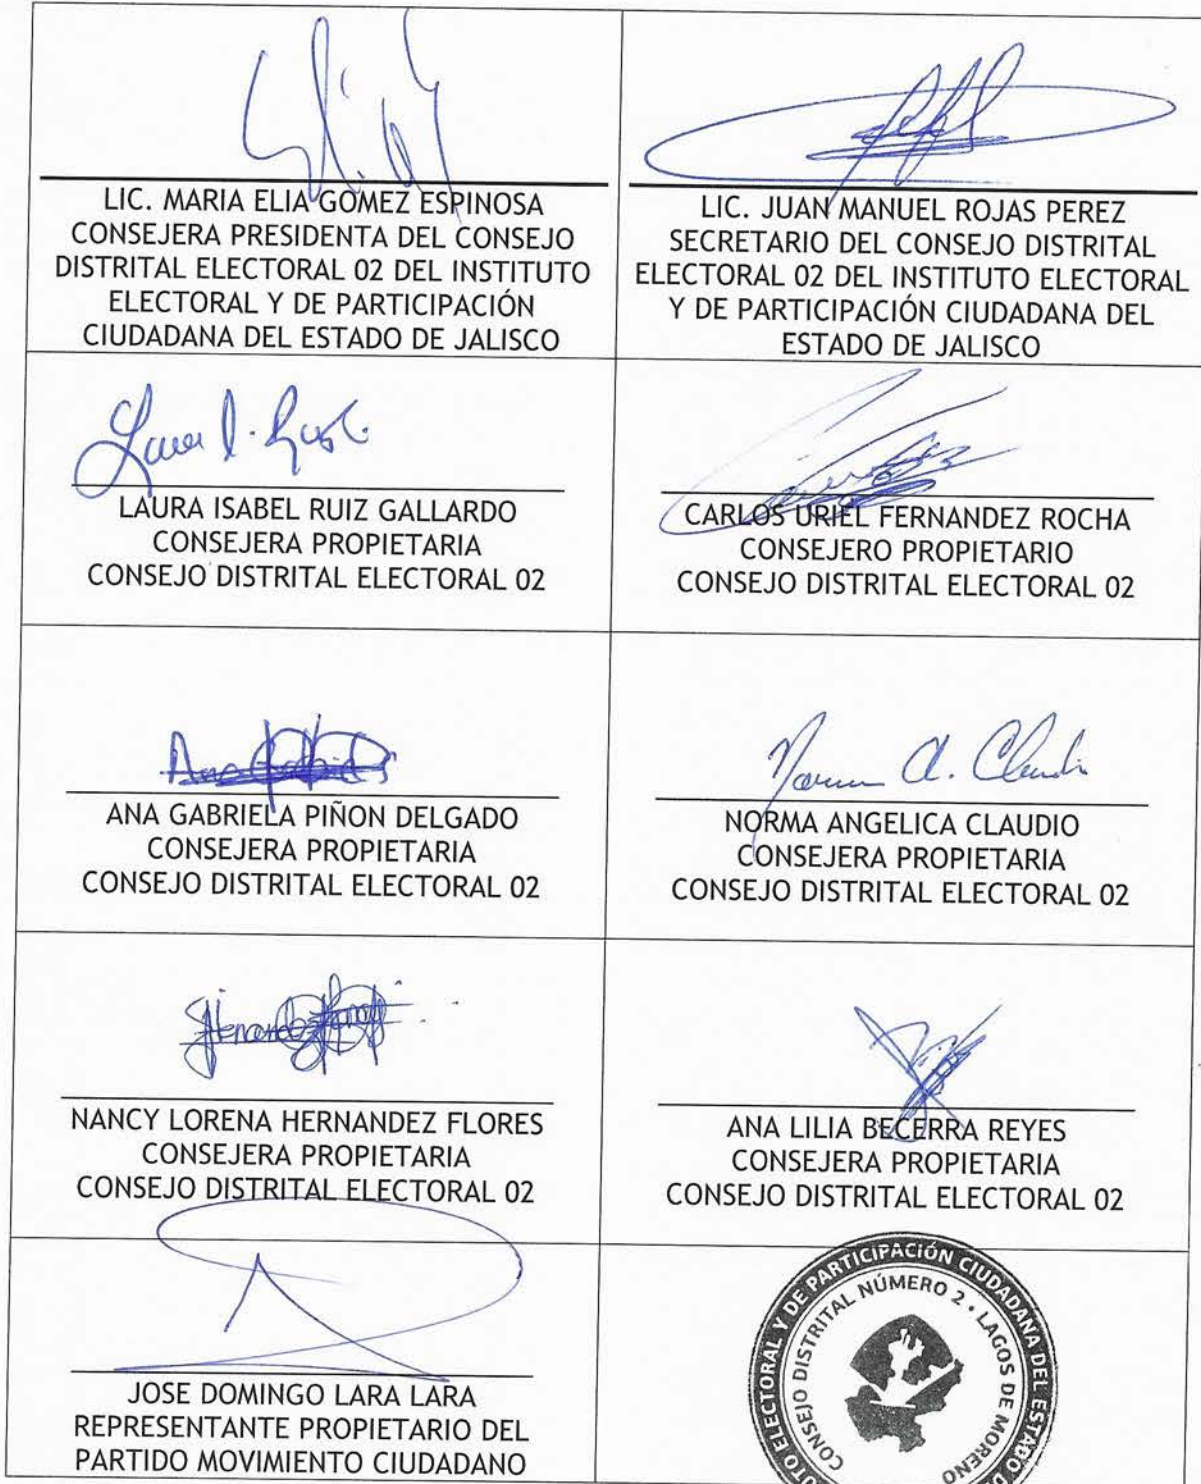 LIC. MARIA ELIA GOMEZ ESPINOSA
CONSEJERA PRESIDENTA DEL CONSEJO
DISTRITAL ELECTORAL 02 DEL INSTITUTO
ELECTORAL Y DE PARTICIPACIÓN
CIUDADANA DEL ESTADO DE JALISCO
LIC. JUAN MANUEL ROJAS PEREZ
SECRETARIO DEL CONSEJO DISTRITAL
ELECTORAL 02 DEL INSTITUTO ELECTORAL
Y DE PARTICIPACIÓN CIUDADANA DEL
ESTADO DE JALISCO
LAURA ISABEL RUIZ GALLARDO
CONSEJERA PROPIETARIA
CONSEJO DISTRITAL ELECTORAL 02
CARLOS URIEL FERNANDEZ ROCHA
CONSEJERO PROPIETARIO
CONSEJO DISTRITAL ELECTORAL 02
ANA GABRIELA PIÑON DELGADO
CONSEJERA PROPIETARIA
CONSEJO DISTRITAL ELECTORAL 02
Norma A. Claudio
NORMA ANGELICA CLAUDIO
CONSEJERA PROPIETARIA
CONSEJO DISTRITAL ELECTORAL 02
NANCY LORENA HERNANDEZ FLORES
CONSEJERA PROPIETARIA
CONSEJO DISTRITAL ELECTORAL 02
ANA LILIA BECERRA REYES
CONSEJERA PROPIETARIA
CONSEJO DISTRITAL ELECTORAL 02
JOSE DOMINGO LARA LARA
REPRESENTANTE PROPIETARIO DEL
PARTIDO MOVIMIENTO CIUDADANO
UTO ELECTORAL Y DE PARTICIPACIÓN CIUDADANA DEL ESTADO D
CONSEJO DISTRITAL NÚMERO 2 • LAGOS DE MORENO